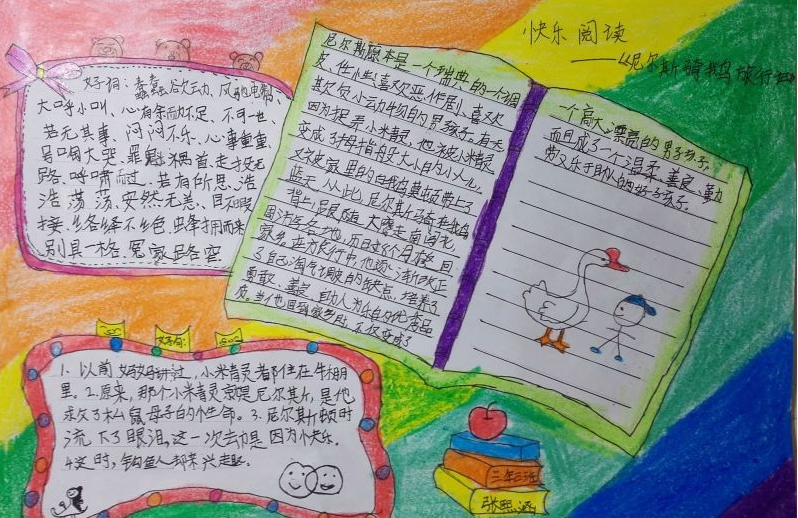 快乐阅读
——《尼尔斯骑鹅旅行记》
好词：蠢蠢欲动、风驰电掣、
大呼小叫、心有余而力不足、不可一世、
若无其事、闷闷不乐、心事重重、
号啕大哭、罪魁祸首、走投无
路、呼啸而过、若有所思、浩
浩荡荡、安然无恙、目不暇
接、络绎不绝、蜂拥而来
别具一格、冤家路窄
尼尔斯原本是一个瑞典的一个调
皮、性
喜欢恶作剧、喜欢
欺负小动物的男孩子。有天
因为捉弄小精灵，他被小精灵
变成了拇指般大小的小人儿，
又使家里的白鹅
带上了
蓝天，从此，尼尔斯骑在鹅
背上，跟随大雁走南闯北，
周游各地，历时8个月才返回
家乡。在旅行中，他逐渐改正
了自己淘气调皮的缺点，培养了
勇敢、善良、助人为乐的优秀品
质。当他回到家乡时，不仅变成了
一个高大漂亮的男孩子，
而且成了一个温柔、善良、勤劳
又乐于助人的好孩子。
好句：
1. 以前妈妈讲过，小精灵都住在牛棚
里。2.原来，那个小精灵就是尼尔斯，是他
救了松鼠母子的性命。3.尼尔斯顿时
流下了眼泪，这一次却是因为快乐。
4.这时，钓鱼人却来兴趣。
三年三班
张熙涵